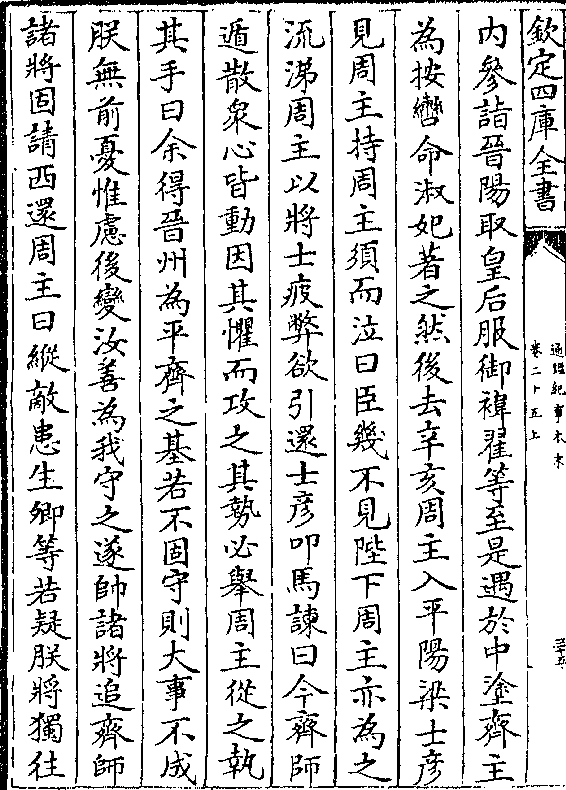 欽定四庫全書
通鑑紀事本末
卷二十五上
三十五
內參詣晉陽取皇后服御褘翟等至是遇於中塗齊主
為按轡命淑妃著之然後去辛亥周主入平陽梁士彥
見周主持周主須而泣曰臣幾不見陛下周主亦為之
流涕周主以將士疲弊欲引還士彥叩馬諫曰今齊師
遁散衆心皆動因其懼而攻之其勢必舉周主從之執
其手曰余得晉州為平齊之基若不固守則大事不成
朕無前憂惟慮後變汝善為我守之遂帥諸將追齊師
諸將固請西還周主曰縱敵患生卿等若疑朕將獨往